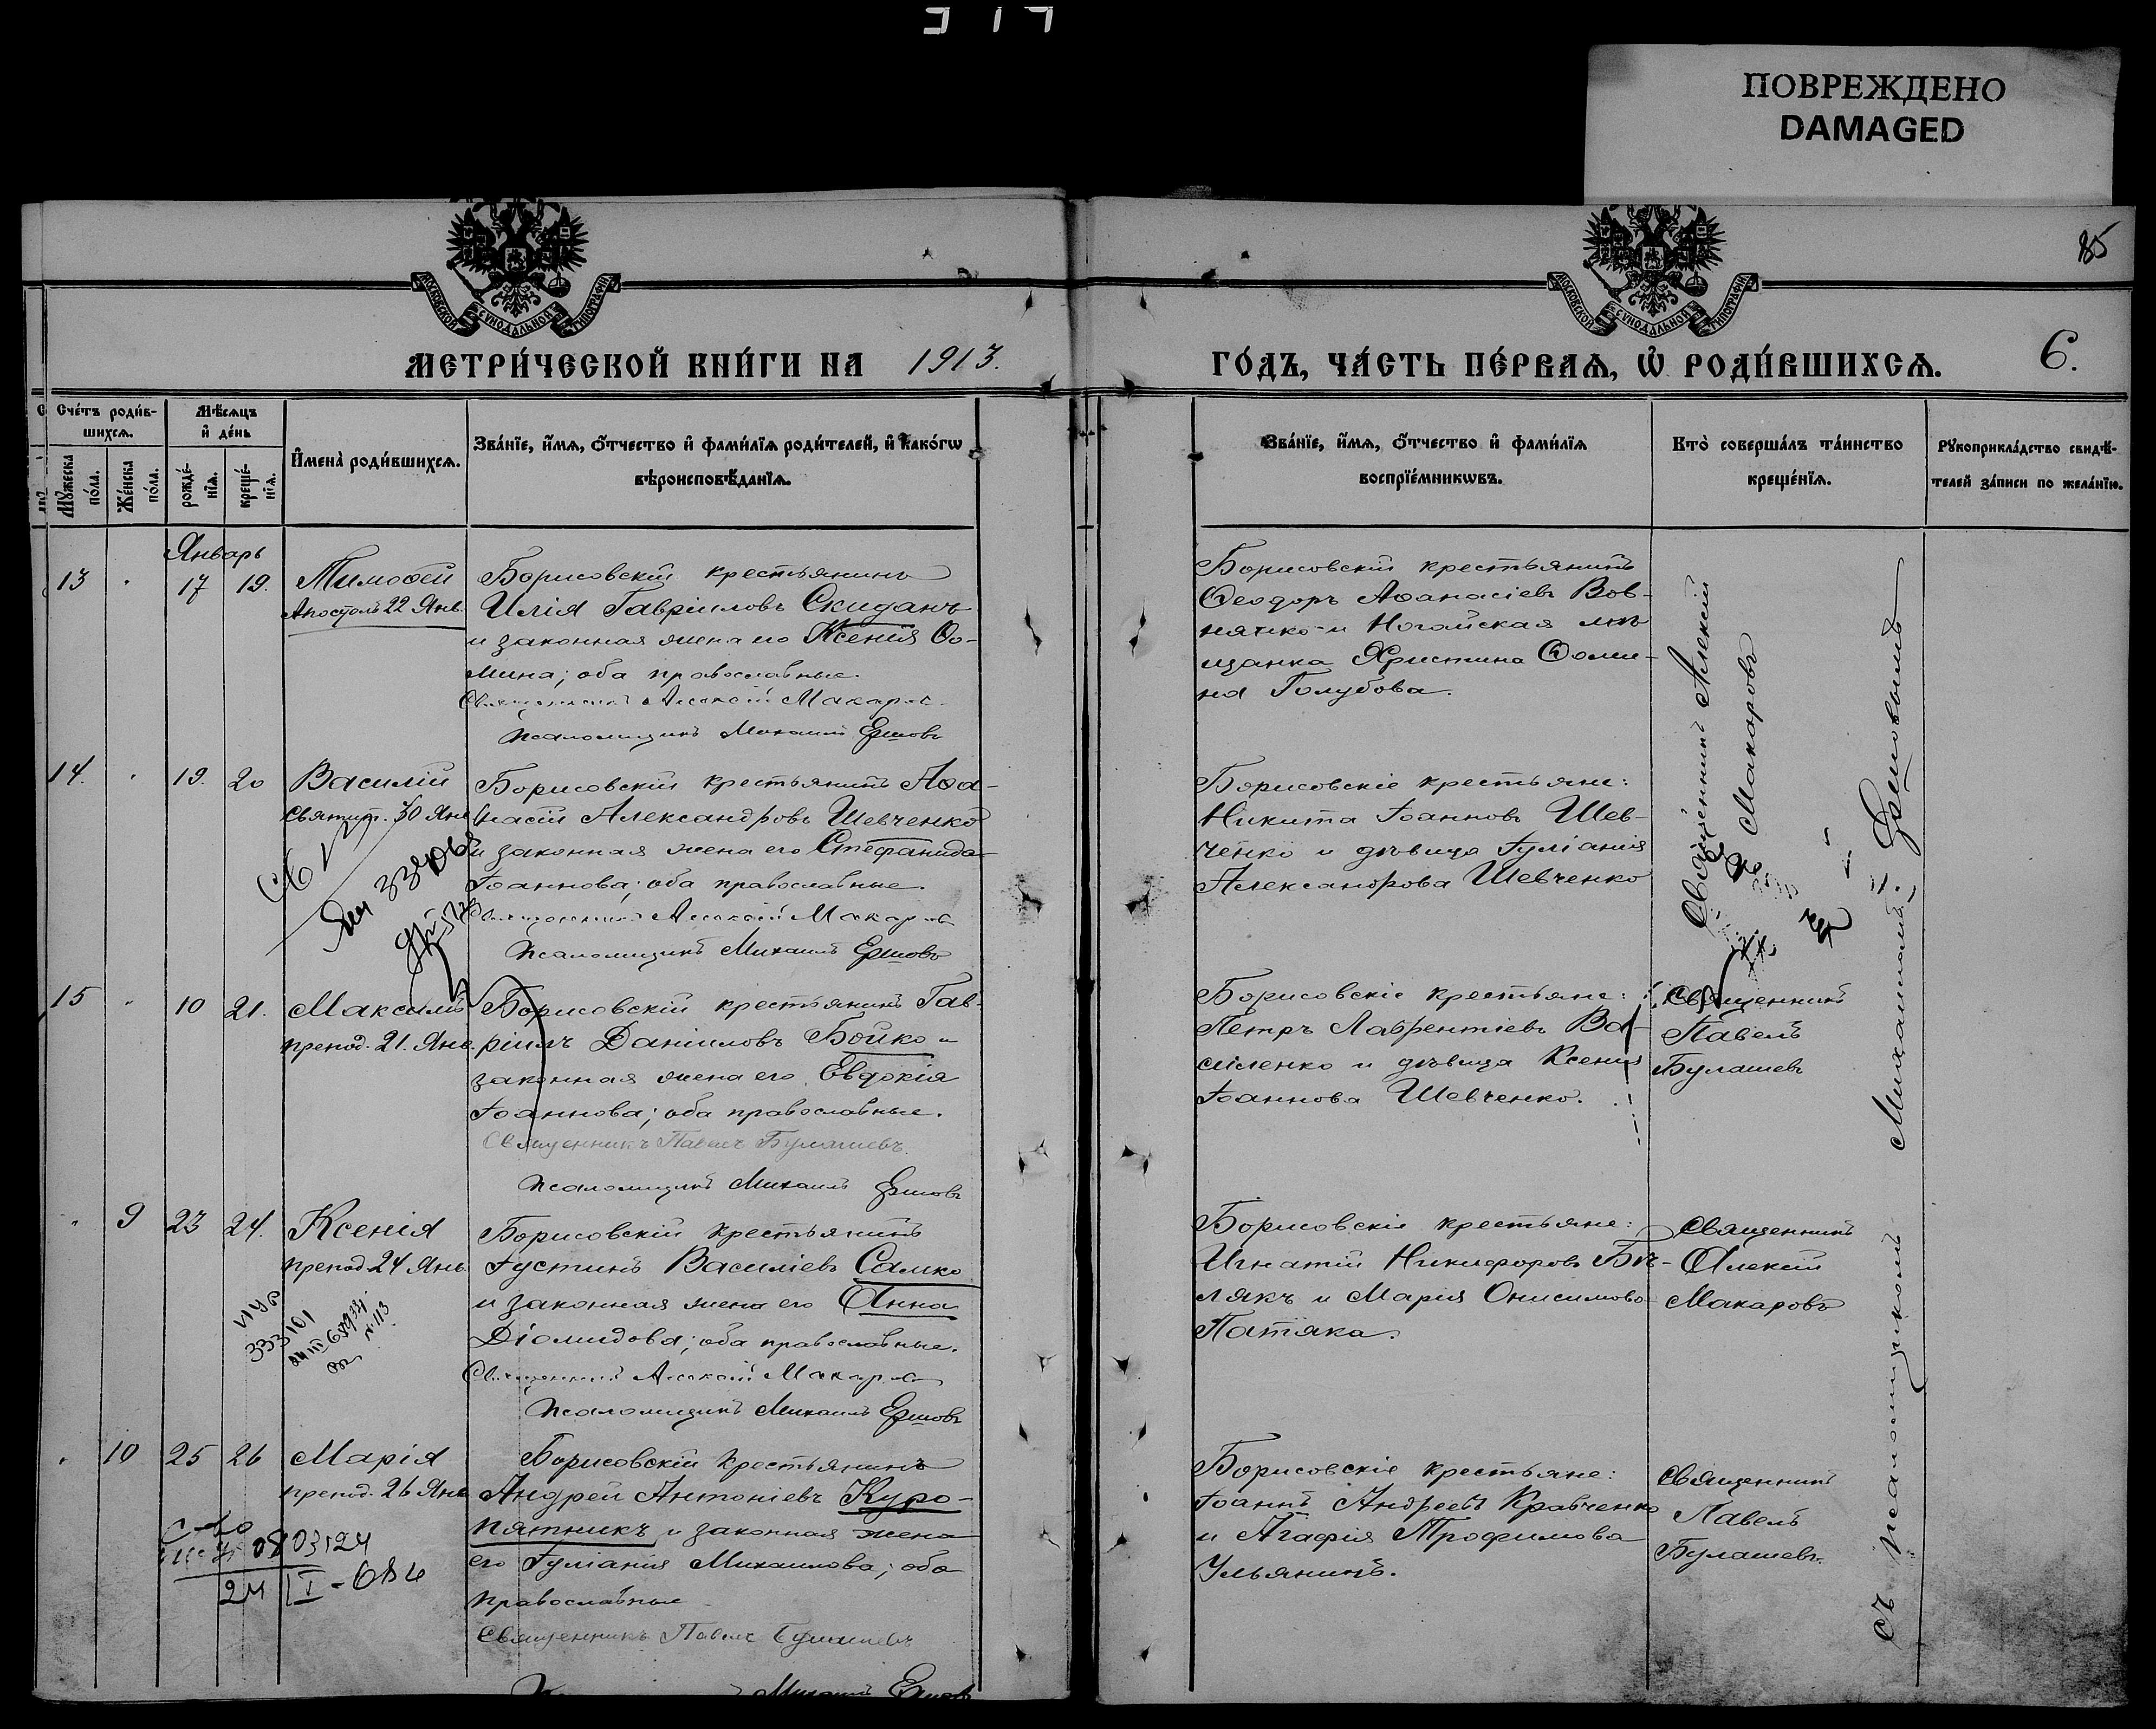 ПОВРЕЖДЕНО
DAMAGED
85
МОСКОВСКОЙ СѴНОДАЛЬНОЙ ТИПОГРАФІИ
МОСКОВСКОЙ СѴНОДАЛЬНОЙ ТИПОГРАФІИ
МЕТРИ́ЧЕСКОЙ КНИ́ГИ НА 1913.
ГО́ДЪ, ЧА́СТЬ ПЕ́РВАѦ, Ѡ РОДИ́ВШИХСѦ. 6.
Сче́тъ роди́в-
шихсѧ.
Мꙋ́жеска
по́ла.
Же́нска
по́ла.
Мѣ́сѧцъ
и҆ де́нь
рожде́-
нїѧ.
креще́-
нїѧ.
И҆мена̀ роди́вшихсѧ.
Зва́нїе, и҆́мѧ, ѻ҆́тчество и҆ фами́лїѧ роди́телей, и҆ како́гѡ
вѣроисповѣ́данїѧ.
Зва́нїе, и҆́мѧ, ѻ҆́тчество и҆ фами́лїѧ
воспрїе́мникѡвъ.
Кто̀ соверша́лъ та́инство
креще́нїѧ.
Рꙋкоприкла́дство свидѣ́-
телей за́писи по жела́нїю.
Январь
13 17 19. Тимоѳей
Апостол 22 Янв.
Борисовскій крестьянинъ
Илія Гавріиловъ Скиданъ
и законная жена его Ксенія Ѳо-
мина; оба православные.
Священникъ Алексій Макаровъ
Псаломщикъ Михаилъ Ершовъ
Борисовскій крестьянинъ
Ѳеодоръ Аѳанасіевъ Вов-
нянко и Ногайская мѣ-
щанка Христина Ѳоми-
на Голубова.
Священникъ Алексій
Макаровъ
14. 19. 20 Василій
Святит. 30 Янв
Борисовскій крестьянинъ Аѳа-
насій Александровъ Шевченко
и законная жена его Стефанида
Іоаннова; оба православные.
Священникъ Алексій Макаровъ
Псаломщикъ Михаилъ Ершовъ
Борисовскіе крестьяне:
Никита Іоанновъ Шев-
ченко и дѣвица Іуліанія
Александрова Шевченко
15 10 21. Максимъ
препод. 21. Янв.
Борисовскій крестьянинъ Гав-
ріилъ Даніиловъ Бойко и
законная жена его Евдокія
Іоаннова; оба православные.
Священникъ Павелъ Булашевъ.
Псаломщикъ Михаилъ Ершовъ
Борисовскіе крестьяне:
Петръ Лаврентіевъ Ва-
силенко и дѣвица Ксенія
Іоаннова Шевченко.
Священникъ
Павелъ
Булашевъ
9 23 24. Ксенія
препод 24 Янв
333101
Борисовскій крестьянинъ
Іустинъ Василіевъ Самко
и законная жена его Анна
Діомидова; оба православные.
Священникъ Алексій Макаровъ
Псаломщикъ Михаилъ Ершовъ
Борисовскіе крестьяне:
Игнатій Никифоровъ Бѣ-
лякъ и Марія Онисимова
Патяка.
Священникъ
Алексій
Макаровъ
10 25 26 Марія
препод. 26 Янв
Борисовскій крестьянинъ
Андрей Антоніевъ Куро-
пятникъ и законная жена
его Іуліанія Михаилова; оба
православные
Священникъ Павелъ Булашевъ
Михаилъ Ершовъ
Борисовскіе крестьяне:
Іоаннъ Андреевъ Кравченко
и Агафія Трофимова
Ульяничъ.
Священникъ
Павелъ
Булашевъ.
съ псаломщикомъ Михаиломъ Ершовымъ